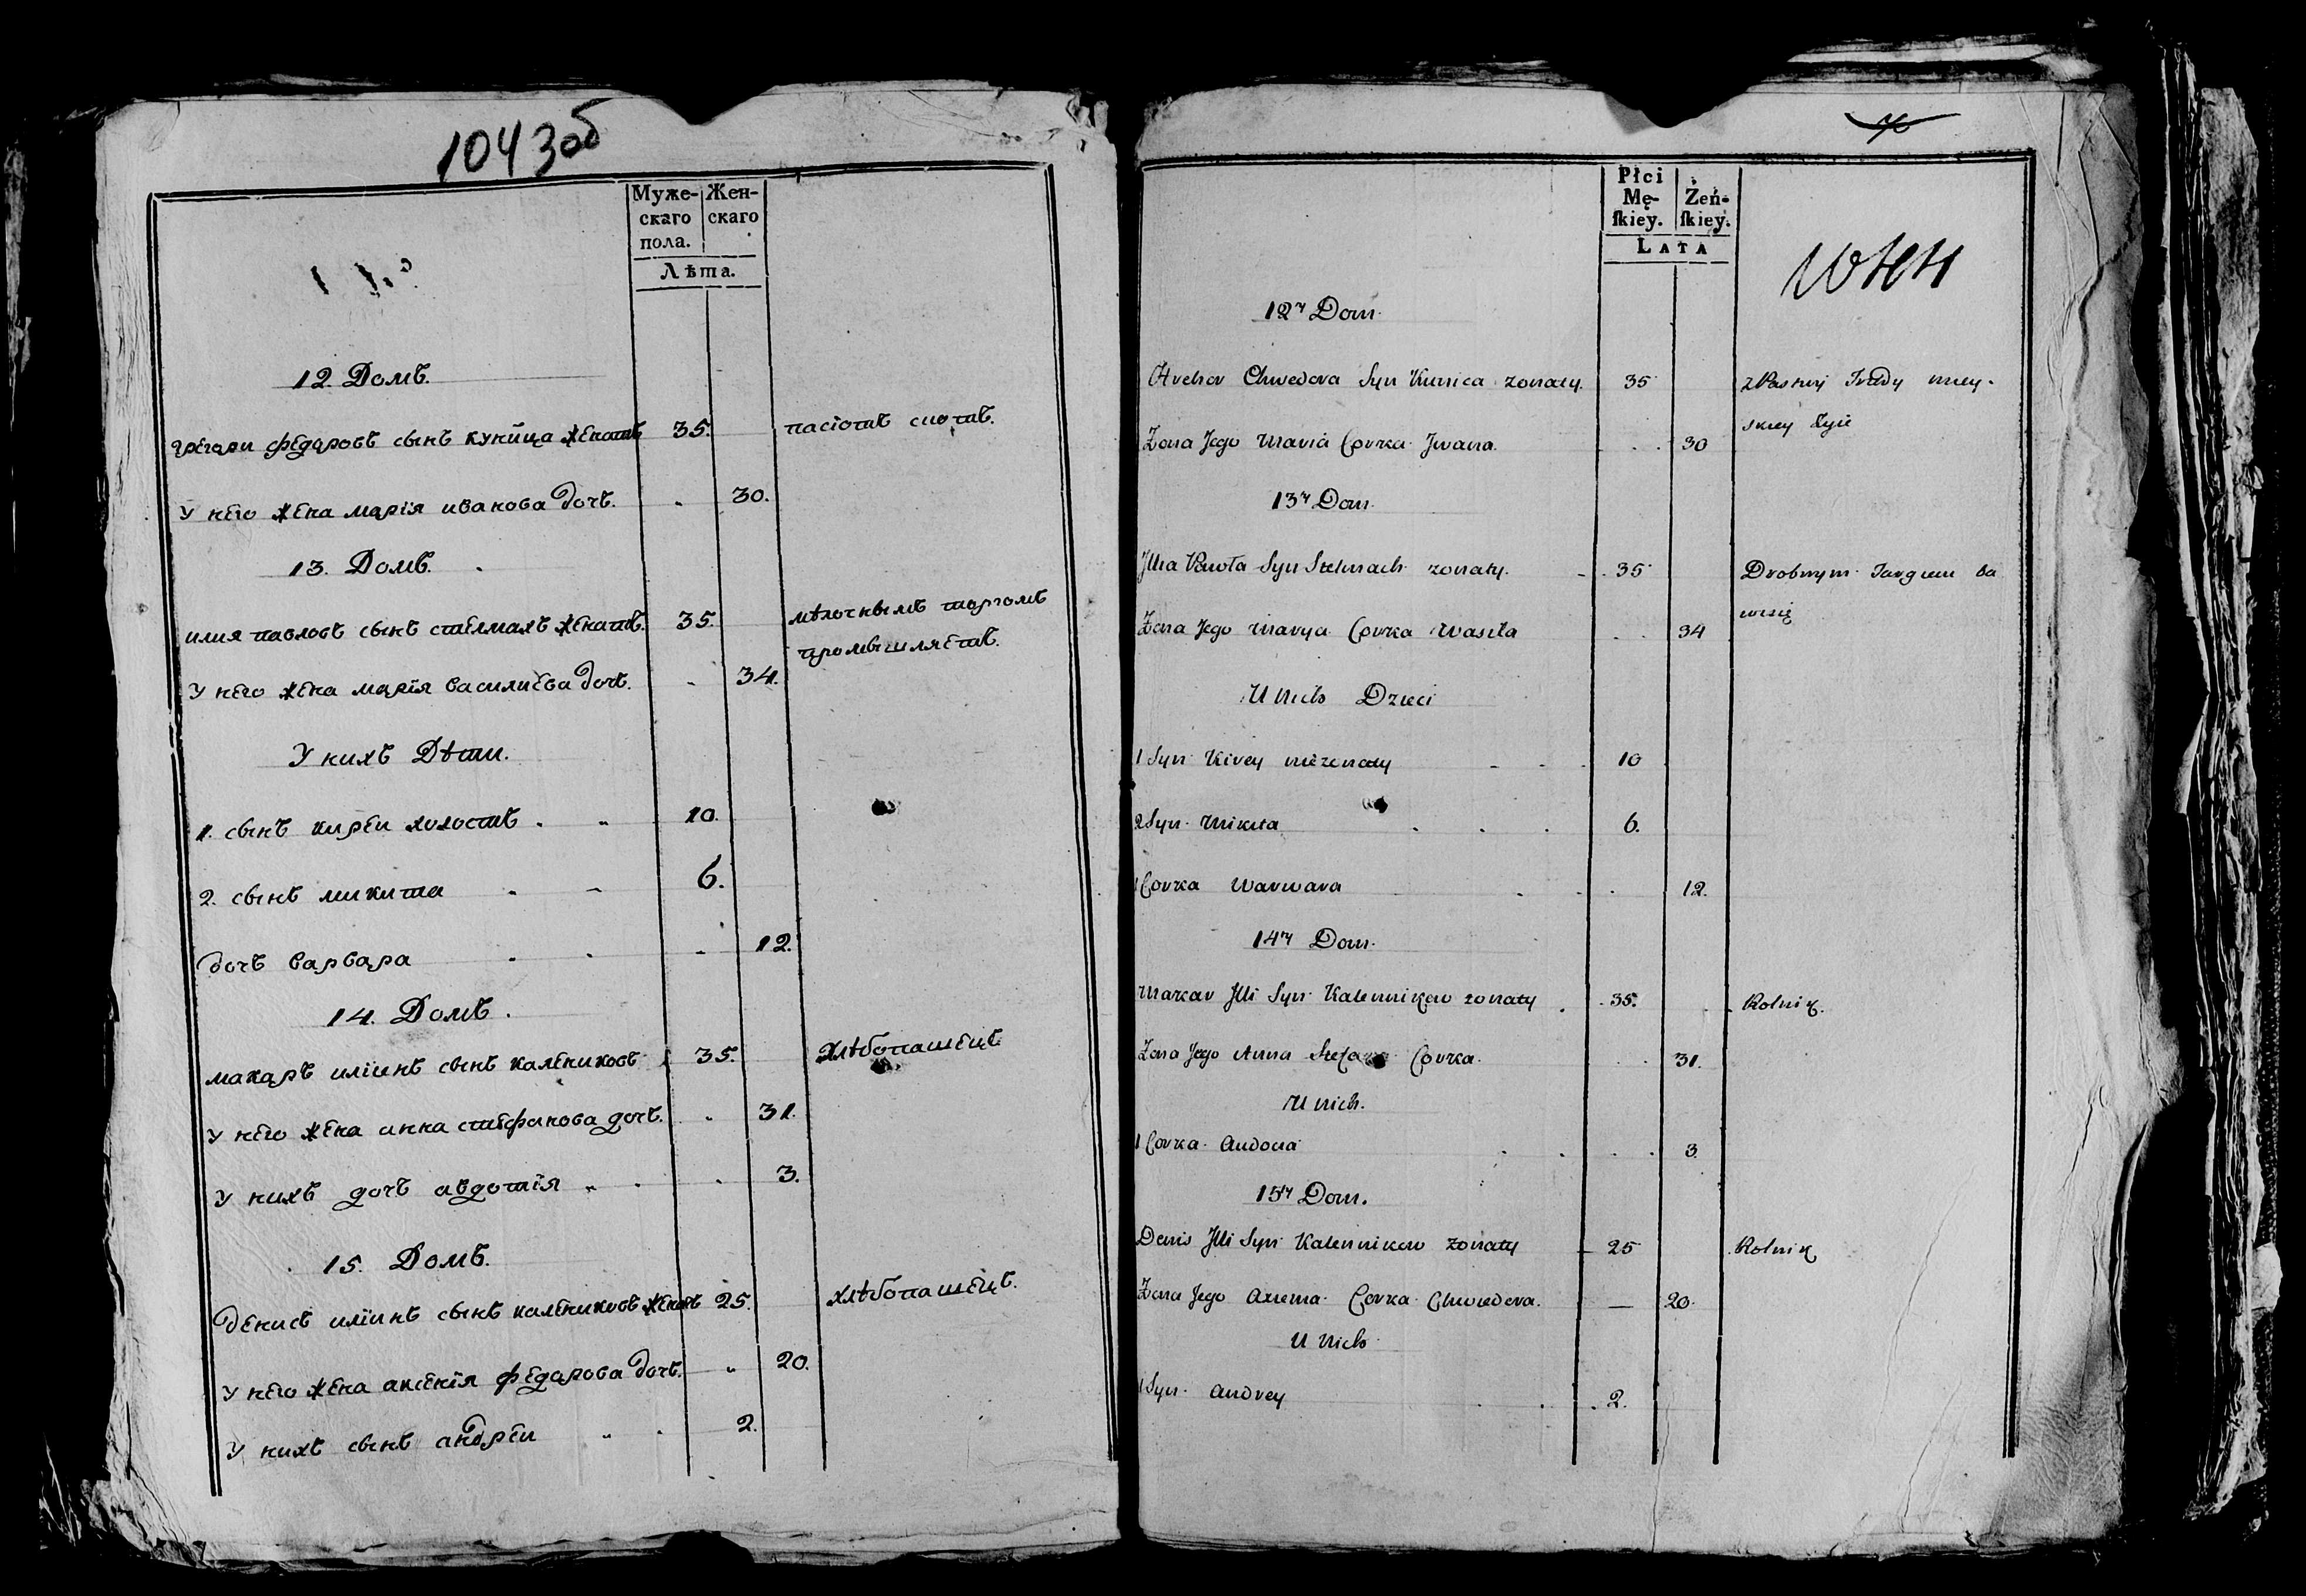 1043 об
Муже-
скаго
пола.
Жен-
скаго
Лѣта.
12. Домъ.
грегори федаровъ сынъ куница женатъ 35. пасіотъ скотъ.
У него жена марія иванова дочь. 30.
13. Домъ.
илия павловъ сынъ стелмахъ женатъ. 35. мѣлочнымъ торгомъ
промышляетъ.
У него жена марія василиева дочь. 34.
У нихъ Дѣти.
1. сынъ кирей холостъ 10.
2. сынъ микита 6.
дочь варвара 12.
14. Домъ.
макаръ иліинъ сынъ калениковъ 35. хлѣбопашецъ
У него жена анна стефанова дочь. 31.
У нихъ дочь авдотія 3.
15. Домъ.
денисъ иліинъ сынъ калениковъ женатъ 25. хлѣбопашецъ.
У него жена аксенія федарова дочь. 20.
У нихъ сынъ андрей 2.
Płci
Mę-
ſkiey.
Żeń-
ſkiey.
LATA
12ty Dom.
Hrehor Chwedora Syn Kunica zonaty. 35 z Pastwy Trzody miey-
skiey żyie
Żona Jego Maria Corka Jwana. 30
13ty Dom.
Jllia Pawła Syn Stelmach zonaty. 35 Drobnym Targiem ba
wi się
Żona Jego Marya Corka Wasila 34
U Nich Dzieci
1 Syn Kirey nieżonaty 10
2 Syn Mikita 6.
1 Corka Warwara 12.
14ty Dom.
Makar Jlli Syn Kalennikow zonaty 35. Rolnik.
Żona Jego Anna Stefana Corka. 31.
U nich.
1 Corka Audocia 3
15ty Dom.
Denis Jlli Syn Kalennikow żonaty 25 Rolnik
Żona Jego Axienia Corka Chwedora. 20.
U Nich
1 Syn Andrey 2.